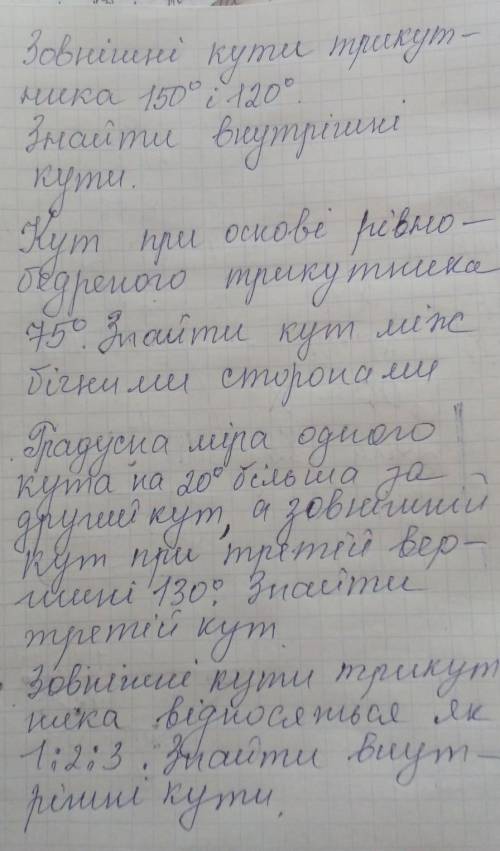 Зовнішні кути трикут-
ника 150° і 120°.
Знайти внутрішні
кути.
Кут при основі рівно-
бедреного трикутника
75°. Знайти кут між
бічними сторонами
Градусна міра одного
кута на 20° більша за
другий кут, а зовнішній
кут при третей вер-
шині 130°. Знайти
третій кут
Зовнішні кути трикут
ника відносяться як
1:2:3. Знайти внут-
рішні кути.